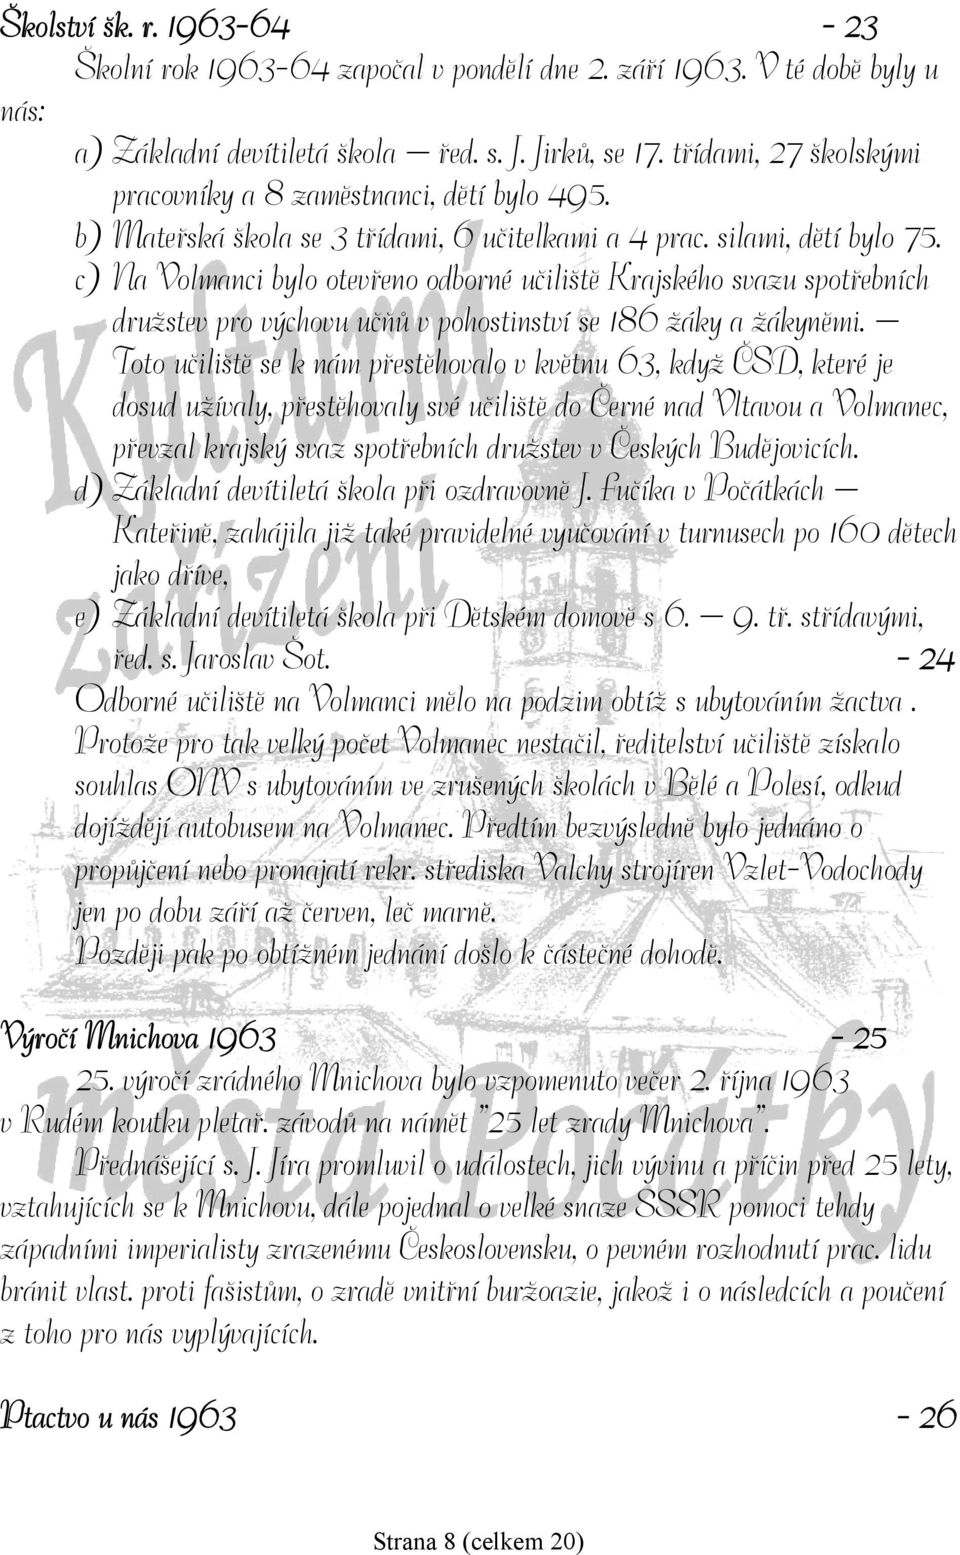 Školství šk. r. 1963-64 - 23
Školní rok 1963-64 započal v pondělí dne 2. září 1963. V té době byly u
nás:
a) Základní devítiletá škola – řed. s. J. Jirků, se 17. třídami, 27 školskými
pracovníky a 8 zaměstnanci, dětí bylo 495.
b) Mateřská škola se 3 třídami, 6 učitelkami a 4 prac. silami, dětí bylo 75.
c) Na Volmanci bylo otevřeno odborné učiliště Krajského svazu spotřebních
družstev pro výchovu učňů v pohostinství se 186 žáky a žákyněmi. –
Toto učiliště se k nám přestěhovalo v květnu 63, když ČSD, které je
dosud užívaly, přestěhovaly své učiliště do Černé nad Vltavou a Volmanec,
převzal krajský svaz spotřebních družstev v Českých Budějovicích.
d) Základní devítiletá škola při ozdravovně J. Fučíka v Počátkách –
Kateřině, zahájila již také pravidelné vyučování v turnusech po 160 dětech
jako dříve,
e) Základní devítiletá škola při Dětském domově s 6. – 9. tř. střídavými,
řed. s. Jaroslav Šot. - 24
Odborné učiliště na Volmanci mělo na podzim obtíž s ubytováním žactva .
Protože pro tak velký počet Volmanec nestačil, ředitelství učiliště získalo
souhlas ONV s ubytováním ve zrušených školách v Bělé a Polesí, odkud
dojíždějí autobusem na Volmanec. Předtím bezvýsledně bylo jednáno o
propůjčení nebo pronajatí rekr. střediska Valchy strojíren Vzlet-Vodochody
jen po dobu září až červen, leč marně.
Později pak po obtížném jednání došlo k částečné dohodě.
Výročí Mnichova 1963 - 25
25. výročí zrádného Mnichova bylo vzpomenuto večer 2. října 1963
v Rudém koutku pletař. závodů na námět "25 let zrady Mnichova".
Přednášející s. J. Jíra promluvil o událostech, jich vývinu a příčin před 25 lety,
vztahujících se k Mnichovu, dále pojednal o velké snaze SSSR pomoci tehdy
západními imperialisty zrazenému Československu, o pevném rozhodnutí prac. lidu
bránit vlast. proti fašistům, o zradě vnitřní buržoazie, jakož i o následcích a poučení
z toho pro nás vyplývajících.
Ptactvo u nás 1963 - 26
Kulturní
zařízení
města Počátky
Strana 8 (celkem 20)